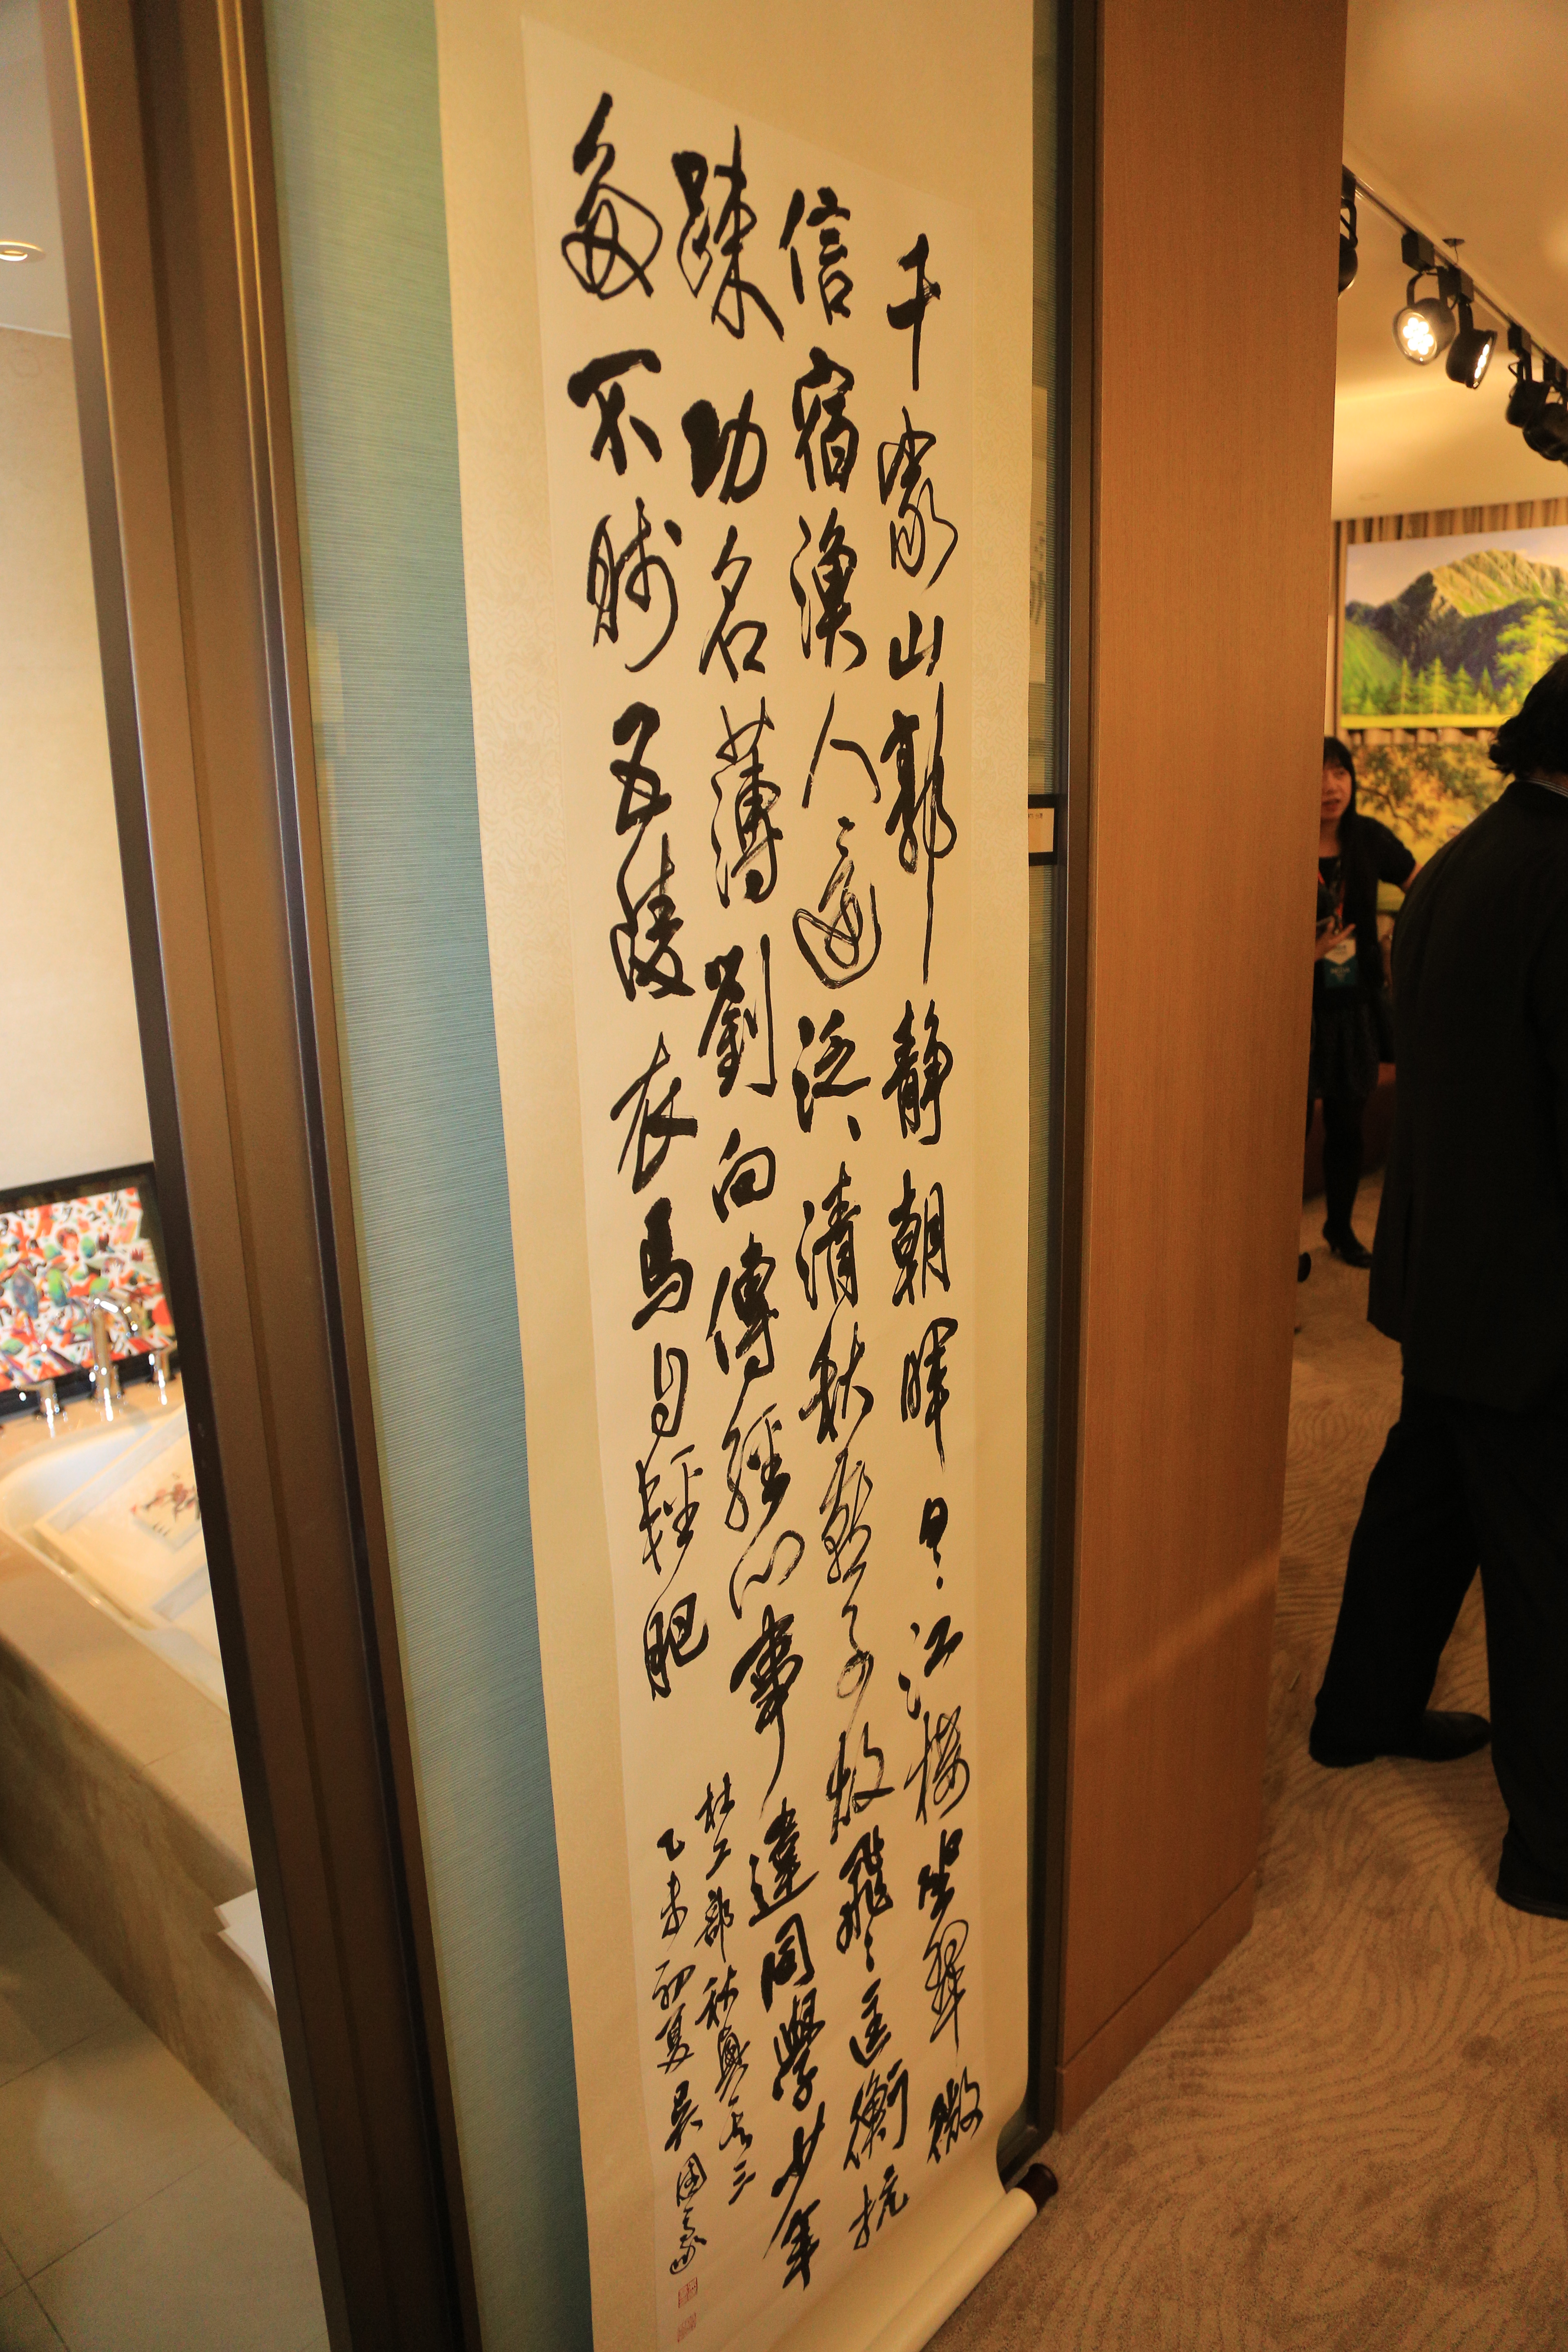 千家山郭靜朝暉日々江樓坐翠微
信宿漁人還泛々清秋燕子故飛々匡衡抗
疎功名薄劉向傳經心事違同學少年
多不賤五陵衣馬自輕肥
杜工部秋興其三
乙未初夏吳國豪